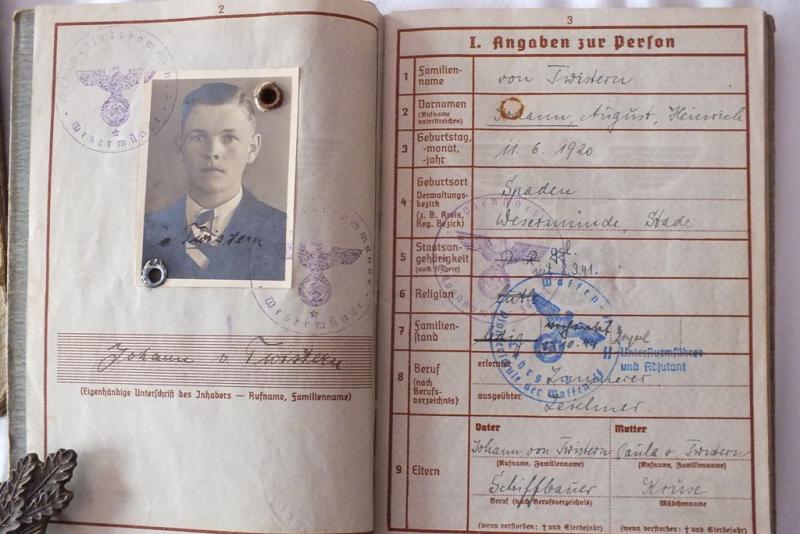 2
Wehrbezirkskommando
Wesermünde
v Twistern
Wesermünde
Johann v Twistern
(Eigenhändige Unterschrift des Inhabers — Rufname, Familienname)
3
I. Angaben zur Person
1 Familienname von Twistern
2 Vornamen (Rufname unterstreichen) Johann, August, Heinrich
3 Geburtstag, -monat, -jahr 11. 6. 1920
4 Geburtsort Spaden
Verwaltungsbezirk (z. B. Kreis, Reg. Bezirk) Wesermünde, Stade
5 Staatsangehörigkeit (auch frühere) ggl.
seit 8.9.41.
6 Religion
7 Familienstand
Waffen-
der Waffen
Untersturmführer
und Adjutant
8 Beruf (nach Berufsverzeichnis) erlernter Zimmerer
ausgeübter Zeichner
9 Eltern
Vater Mutter
Johann von Twistern Paula v Twistern
(Rufname, Familienname) (Rufname, Familienname)
Schiffbauer Kruse
Beruf (nach Berufsverzeichnis) Mädchenname
(wenn verstorben: † und Sterbejahr) (wenn verstorben: † und Sterbejahr)